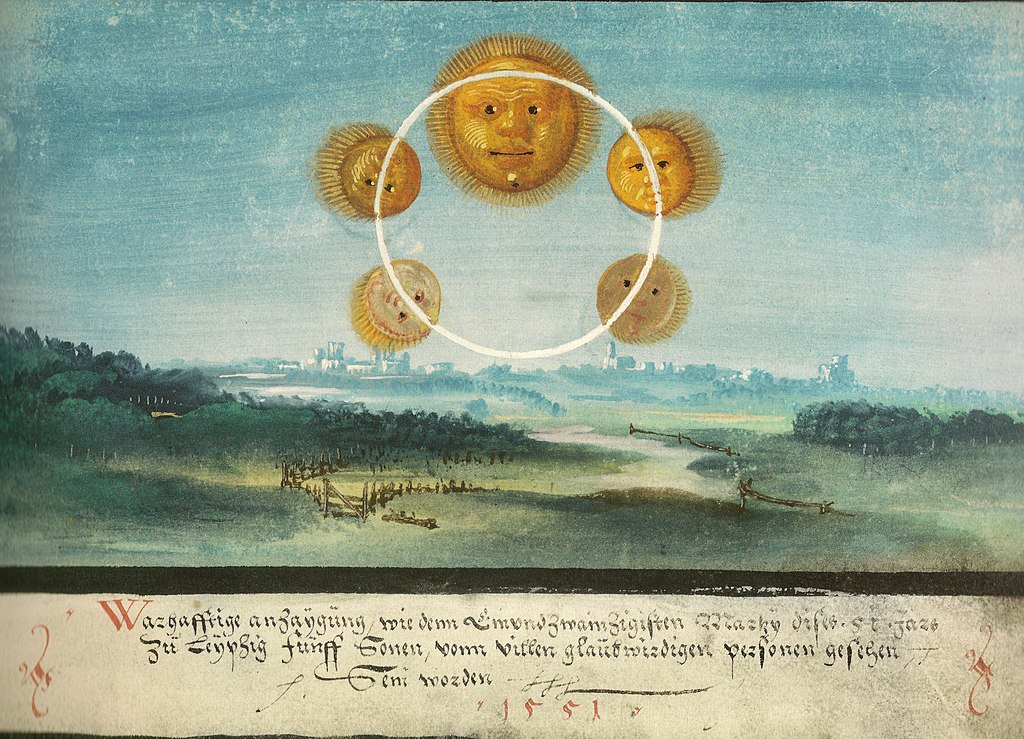 Warhafftige anzaÿgüng, wie dem Einvndzwaintzigisten Martzÿ dises .51. Jars
Zü Leÿpzig fünff Sonen, vonn villen glaubwirdigen personen gesehen
Sein worden
1551